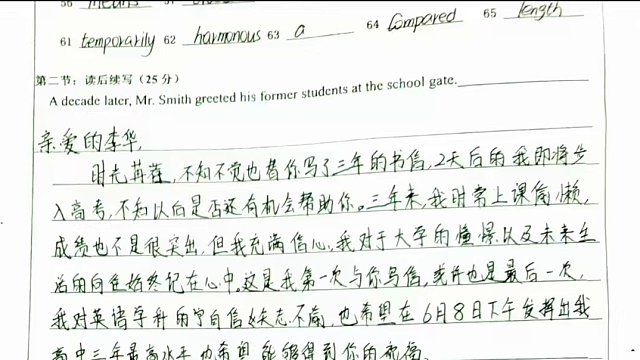 56 means 57
61 temporarily 62 harmonous 63 a 64 Compared 65 length
第二节：读后续写（25 分）
A decade later, Mr. Smith greeted his former students at the school gate.
亲爱的李华,
时光荏苒,不知不觉也替你写了三年的书信,2天后的我即将步
入高考,不知以后是否还有机会帮助你。三年来,我时常上课偷懒,
成绩也不是很突出,但我充满信心,我对于大学的憧憬以及未来生
活的向往始终记在心中。这是我第一次与你写信,或许也是最后一次,
我对英语学科的自信矢志不渝,也希望在6月8日下午发挥出我
高中三年最高水平,也希望能够得到你的祝福